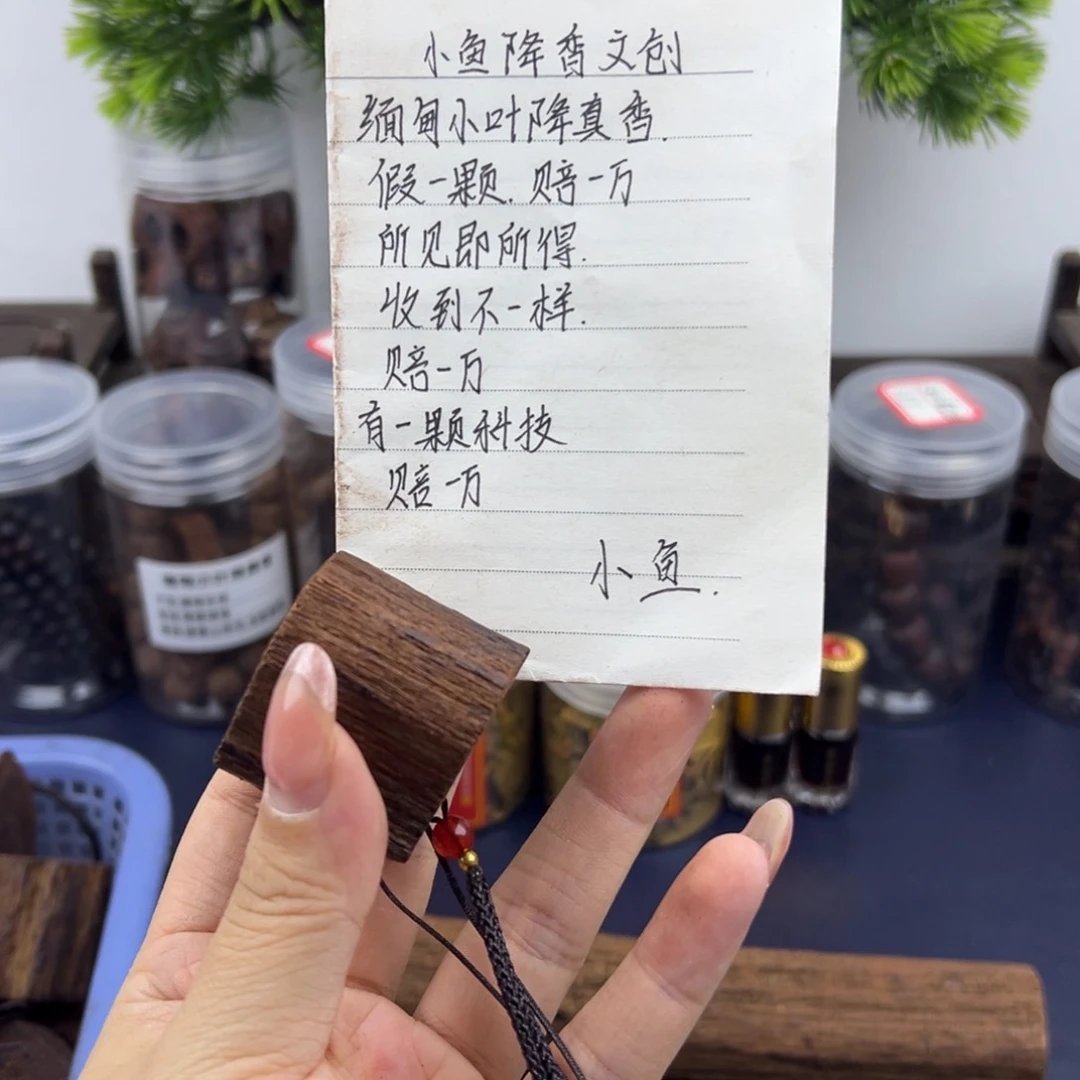 小鱼降香文创
缅甸小叶降真香.
假一颗.赔一万
所见即所得.
收到不一样.
赔一万
有一颗科技
赔一万
小鱼.